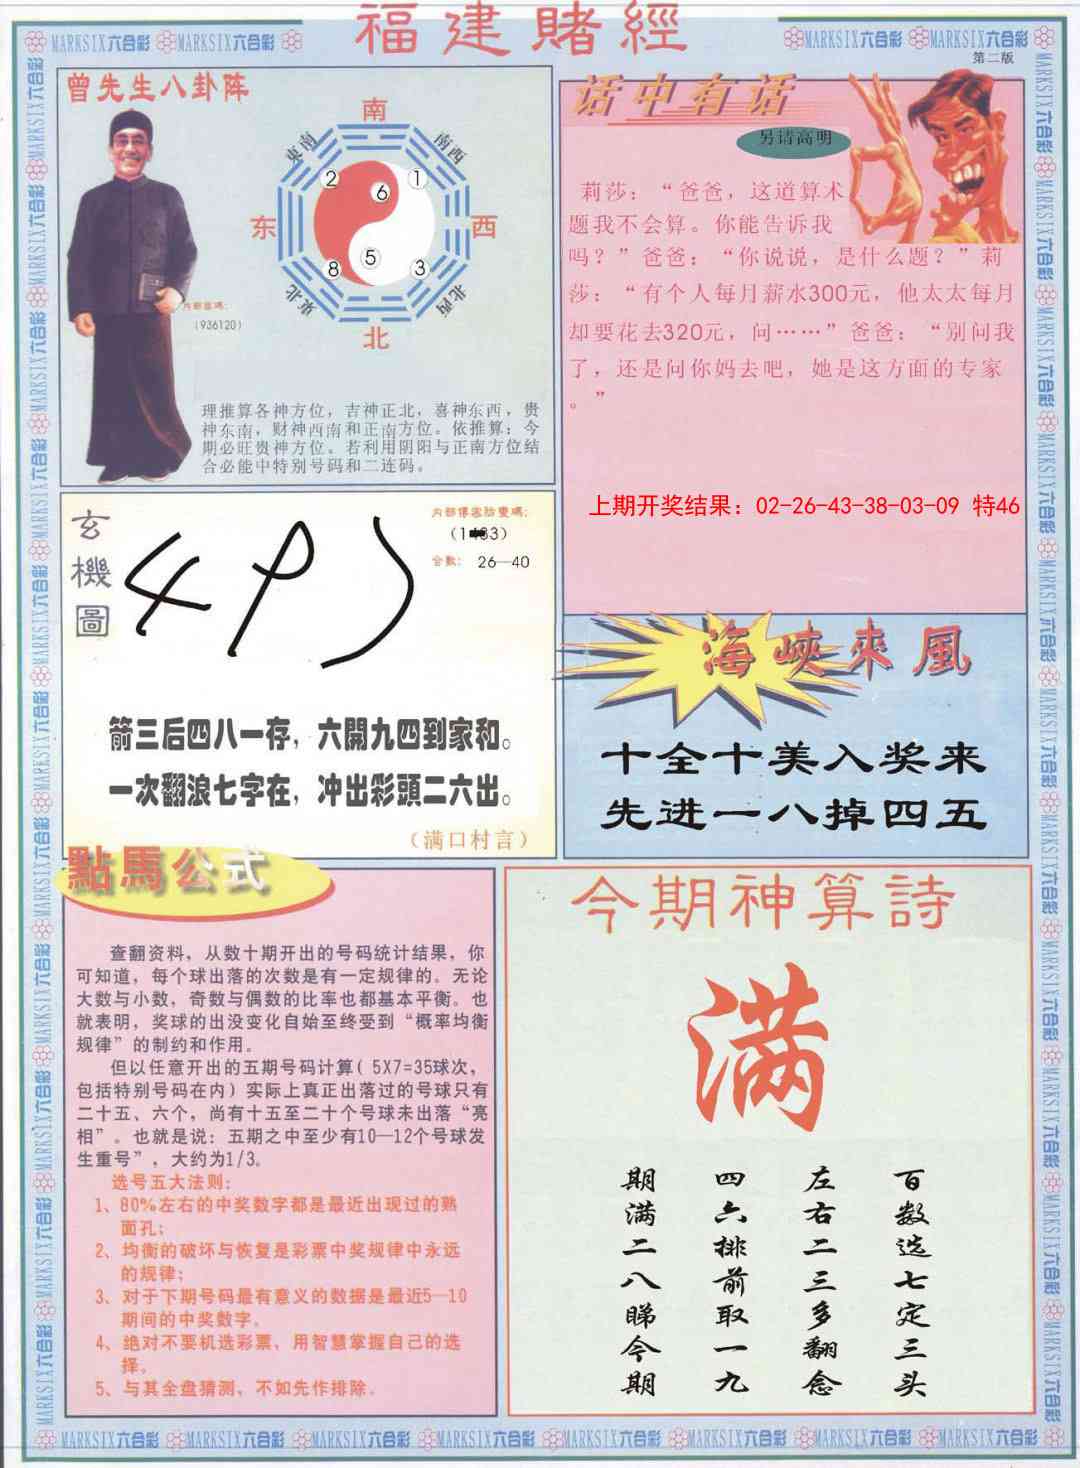 福建賭經
MARKSIX六合彩 MARKSIX六合彩
MARKSIX六合彩 MARKSIX六合彩
第二版
曾先生八卦阵
南
東南
南西
2
6
1
东
西
8
5
3
東北
北西
北
内部密碼:
(936120)
理推算各神方位，吉神正北，喜神东西，贵
神东南，财神西南和正南方位。依推算：今
期必旺贵神方位。若利用阴阳与正南方位结
合必能中特别号码和二连码。
话中有话
另请高明
莉莎：“爸爸，这道算术
题我不会算。你能告诉我
吗？”爸爸：“你说说，是什么题？”莉
莎：“有个人每月薪水300元，他太太每月
却要花去320元，问……”爸爸：“别问我
了，还是问你妈去吧，她是这方面的专家
。”
上期开奖结果：02-26-43-38-03-09 特46
玄機圖
内部傳密胎靈碼:
合數: 26—40
箭三后四八一存，六開九四到家和。
一次翻浪七字在，冲出彩頭二六出。
（满口村言）
海峽來風
十全十美入奖来
先进一八掉四五
點馬公式
查翻资料，从数十期开出的号码统计结果，你
可知道，每个球出落的次数是有一定规律的。无论
大数与小数，奇数与偶数的比率也都基本平衡。也
就表明，奖球的出没变化自始至终受到“概率均衡
规律”的制约和作用。
但以任意开出的五期号码计算( 5X7=35球次，
包括特别号码在内) 实际上真正出落过的号球只有
二十五、六个，尚有十五至二十个号球未出落“亮
相”。也就是说：五期之中至少有10—12个号球发
生重号”，大约为1/3。
选号五大法则：
1、80%左右的中奖数字都是最近出现过的熟
面孔；
2、均衡的破坏与恢复是彩票中奖规律中永远
的规律；
3、对于下期号码最有意义的数据是最近5—10
期间的中奖数字。
4、绝对不要机选彩票，用智慧掌握自己的选
择。
5、与其全盘猜测，不如先作排除。
今期神算詩
满
百数选七定三头
左右二三多翻念
四六排前取一九
期满二八睇今期
MARKSIX六合彩 MARKSIX六合彩 MARKSIX六合彩 MARKSIX六合彩 MARKSIX六合彩 MARKSIX六合彩 MARKSIX六合彩 MARKSIX六合彩